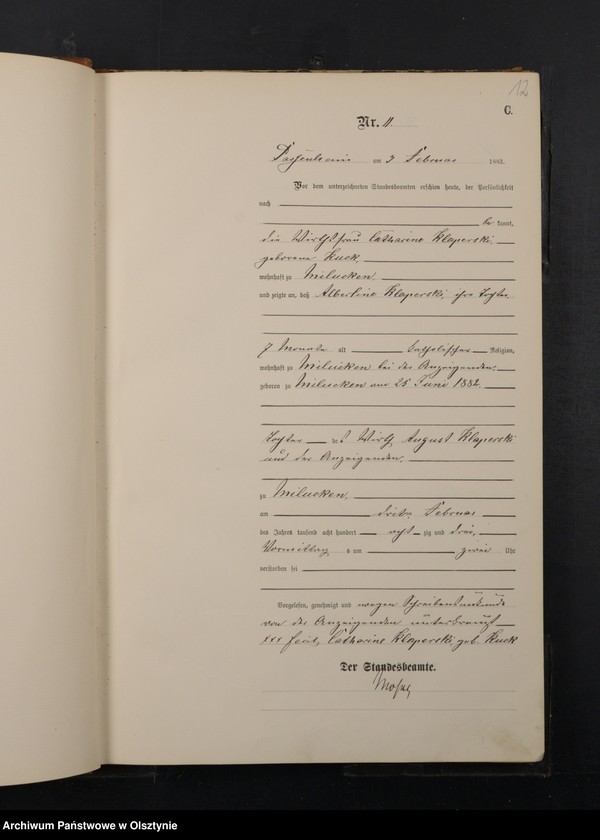 12
C.
Nr. 11
Passenheim am 3 Februar 1883.
Vor dem unterzeichneten Standesbeamten erschien heute, der Persönlichkeit
nach
be kannt,
die Wirthsfrau Catharine Klaperski,
geborene Kuck,
wohnhaft zu Milucken
und zeigte an, daß Albertine Klaperski, ihre Tochter
7 Monate alt katholischer Religion,
wohnhaft zu Milucken bei der Anzeigenden,
geboren zu Milucken am 25 Juni 1882
Tochter des Wirth August Klaperski
und der Anzeigenden
zu Milucken,
am dritten Februar
des Jahres tausend acht hundert acht zig und drei,
Vormittag s um zwei Uhr
verstorben sei
Vorgelesen, genehmigt und wegen Schreibensunkunde
von der Anzeigenden unterkreuzt
+++ Catharine Klaperski, geb. Kuck
Der Standesbeamte.
Archiwum Państwowe w Olsztynie